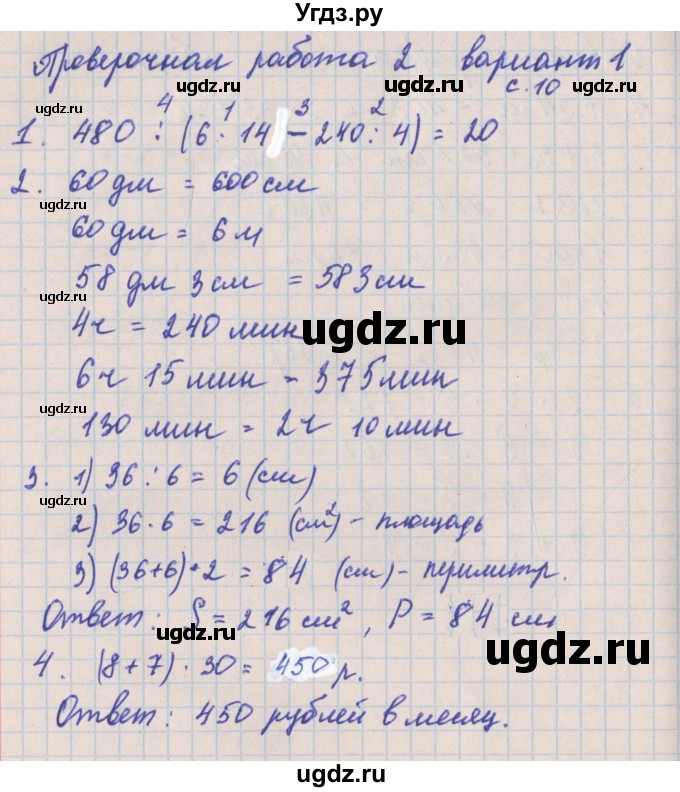 Угдз.ру
Проверочная работа 2 вариант 1
ugdz.ru ugdz.ru ugdz.ru
с. 10
4 1 3 2
1. 480 : (6 · 14 − 240 : 4) = 20
2. 60 дм = 600 см
ugdz.ru
60 дм = 6 м
58 дм 3 см = 583 см
ugdz.ru
4ч = 240 мин
ugdz.ru
6ч 15 мин = 375 мин
ugdz.ru
130 мин = 2ч 10 мин
3. 1) 36 : 6 = 6 (см)
ugdz.ru
2) 36 · 6 = 216 (см²) - площадь
3) (36+6) · 2 = 84 (см) - периметр.
ugdz.ru
Ответ: S = 216 см², P = 84 см
ugdz.ru ugdz.ru ugdz.ru
4. (8 + 7) · 30 = 450 р.
Ответ: 450 рублей в месяц.
ugdz.ru
ugdz.ru